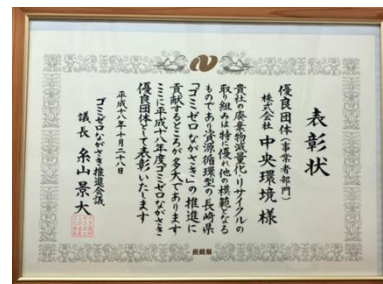 表彰状
優良団体(事業者部門)
株式会社 中央環境 様
貴社の廃棄物減量化・リサイクルの
取り組みは特に優れ他の模範となる
ものであり資源循環型の長崎県
「ゴミゼロながさき」の推進に
貢献するところが多大であります
ここに平成十八年度ゴミゼロながさき
優良団体として表彰いたします
平成十八年十月二十八日
ゴミゼロながさき推進会議
議長 糸山景大
長崎県